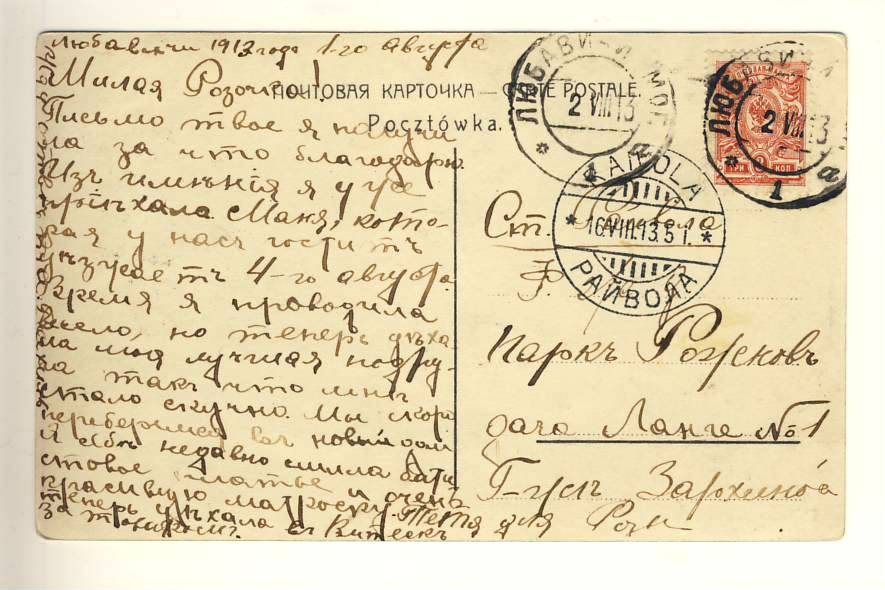 Любавичи 1913 года 1-го августа
Милая Розочка!
ПОЧТОВАЯ КАРТОЧКА — CARTE POSTALE.
Pocztówka.
Письмо твое я получи
ла за что благодарю.
Изъ имѣнія я уже
пріѣхала Маня, кото-
рая у насъ гоститъ
уѣзжаетъ 4-го августа.
Время я проводила
весело, но теперь уѣха-
ла моя лучшая подру-
га такъ что мнѣ
стало скучно. Мы скоро
переберемся въ новый дом
Я себѣ недавно сшила бати
стовое платье и очень
красивую матроску. Тетя
теперь уѣхала
за границу. въ Витебскъ
ЛЮБАВИЧИ МОГ.
2 VIII 13
а
ЛЮБАВИЧИ
2 VIII 13
1 а
ТРИ 3 КОП
RAIVOLA
16.VIII.13. 5 I.
РАЙВОЛА
Ст. Райвола
Ф.
Паркъ Рожковъ
дача Ланге №1
Г-жѣ Зархиной
для Розы